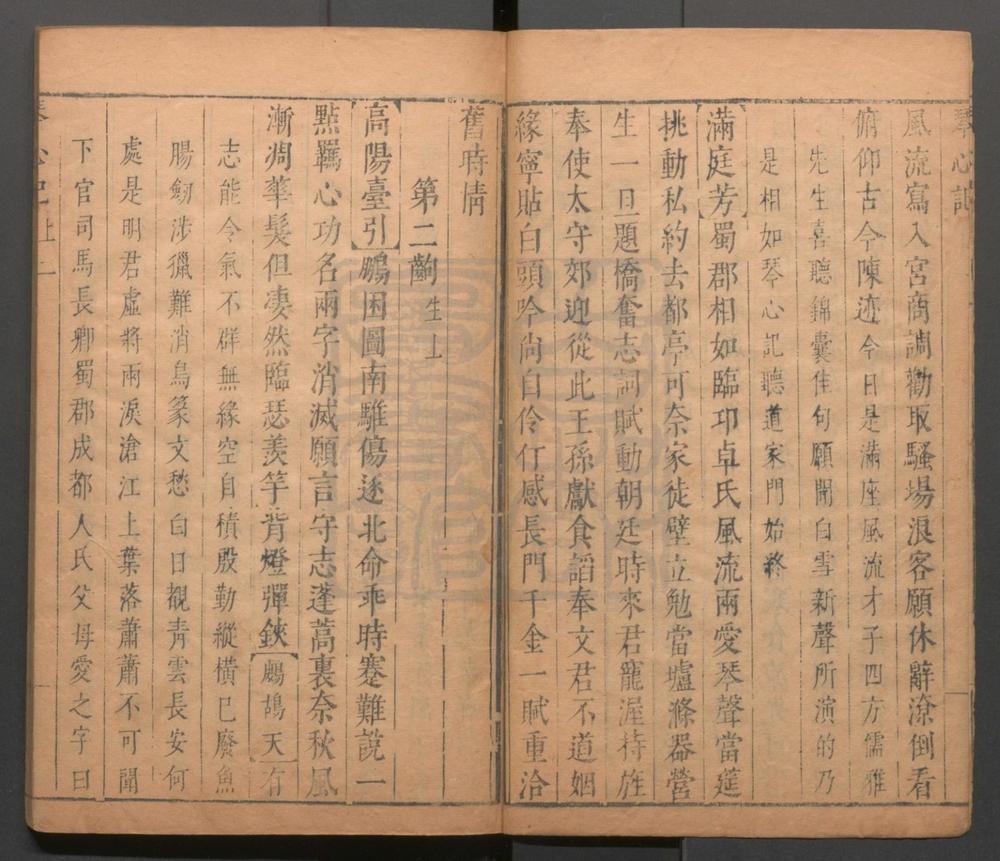 琴心記
風流寫入宮商調勸取騷場浪客願休辭潦倒看
俯仰古今陳迹今日是滿座風流才子四方儒雅
先生喜聽錦囊佳句願聞白雪新聲所演的乃
是相如琴心記聽道家門始終
【滿庭芳】蜀郡相如臨卭卓氏風流兩愛琴聲當筵
挑動私約去都亭可奈家徒壁立勉當壚滌器營
生一旦題橋奮志詞賦動朝廷時來君寵渥持旌
奉使太守郊迎從此王孫獻食謟奉文君不道姻
緣寧貼白頭吟尚自伶仃感長門千金一賦重洽
舊時情
第二齣生上
【高陽臺引】鵬困圖南騅傷逐北命乖時蹇難說一
點羈心功名兩字消滅願言守志蓬蒿裏奈秋風
漸凋華髮但凄然臨瑟羨竽背燈彈鋏【鷓鴣天】有
志能令氣不群無緣空自積殷勤縱橫已廢魚
腸劒涉獵難消鳥篆文愁白日覩青雲長安何
處是明君虛將兩淚滄江上葉落蕭蕭不可聞
下官司馬長卿蜀郡成都人氏父母愛之字曰
琴心記上二